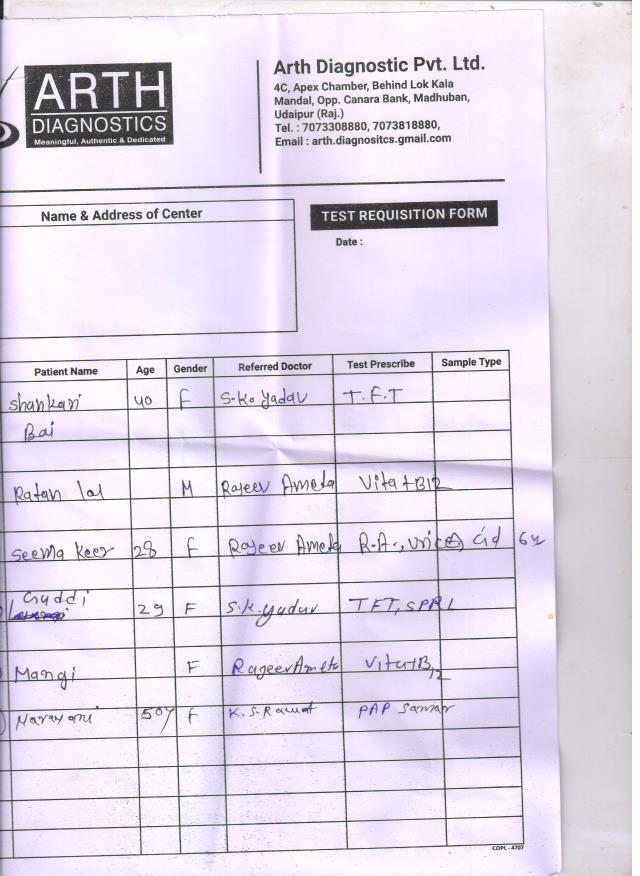 ARTH
DIAGNOSTICS
Meaningful, Authentic & Dedicated
Arth Diagnostic Pvt. Ltd.
4C, Apex Chamber, Behind Lok Kala
Mandal, Opp. Canara Bank, Madhuban,
Udaipur (Raj.)
Tel. : 7073308880, 7073818880,
Email : arth.diagnositcs.gmail.com
Name & Address of Center
TEST REQUISITION FORM
Date :
Patient Name Age Gender Referred Doctor Test Prescribe Sample Type
Shankari 40 F S.K. Yadav T.F.T
Bai
Ratan lal M Rajeev Ameta Vita+B12
Seema Keer 28 F Rajeev Ameta R.A., Uric
Guddi 29 F S.K. Yadav TFT, SPRL
Mangi F Rajeev Ameta Vita+B12
Narayani 50Y F K.S. Rawat PAP Samar
COPL - 4707